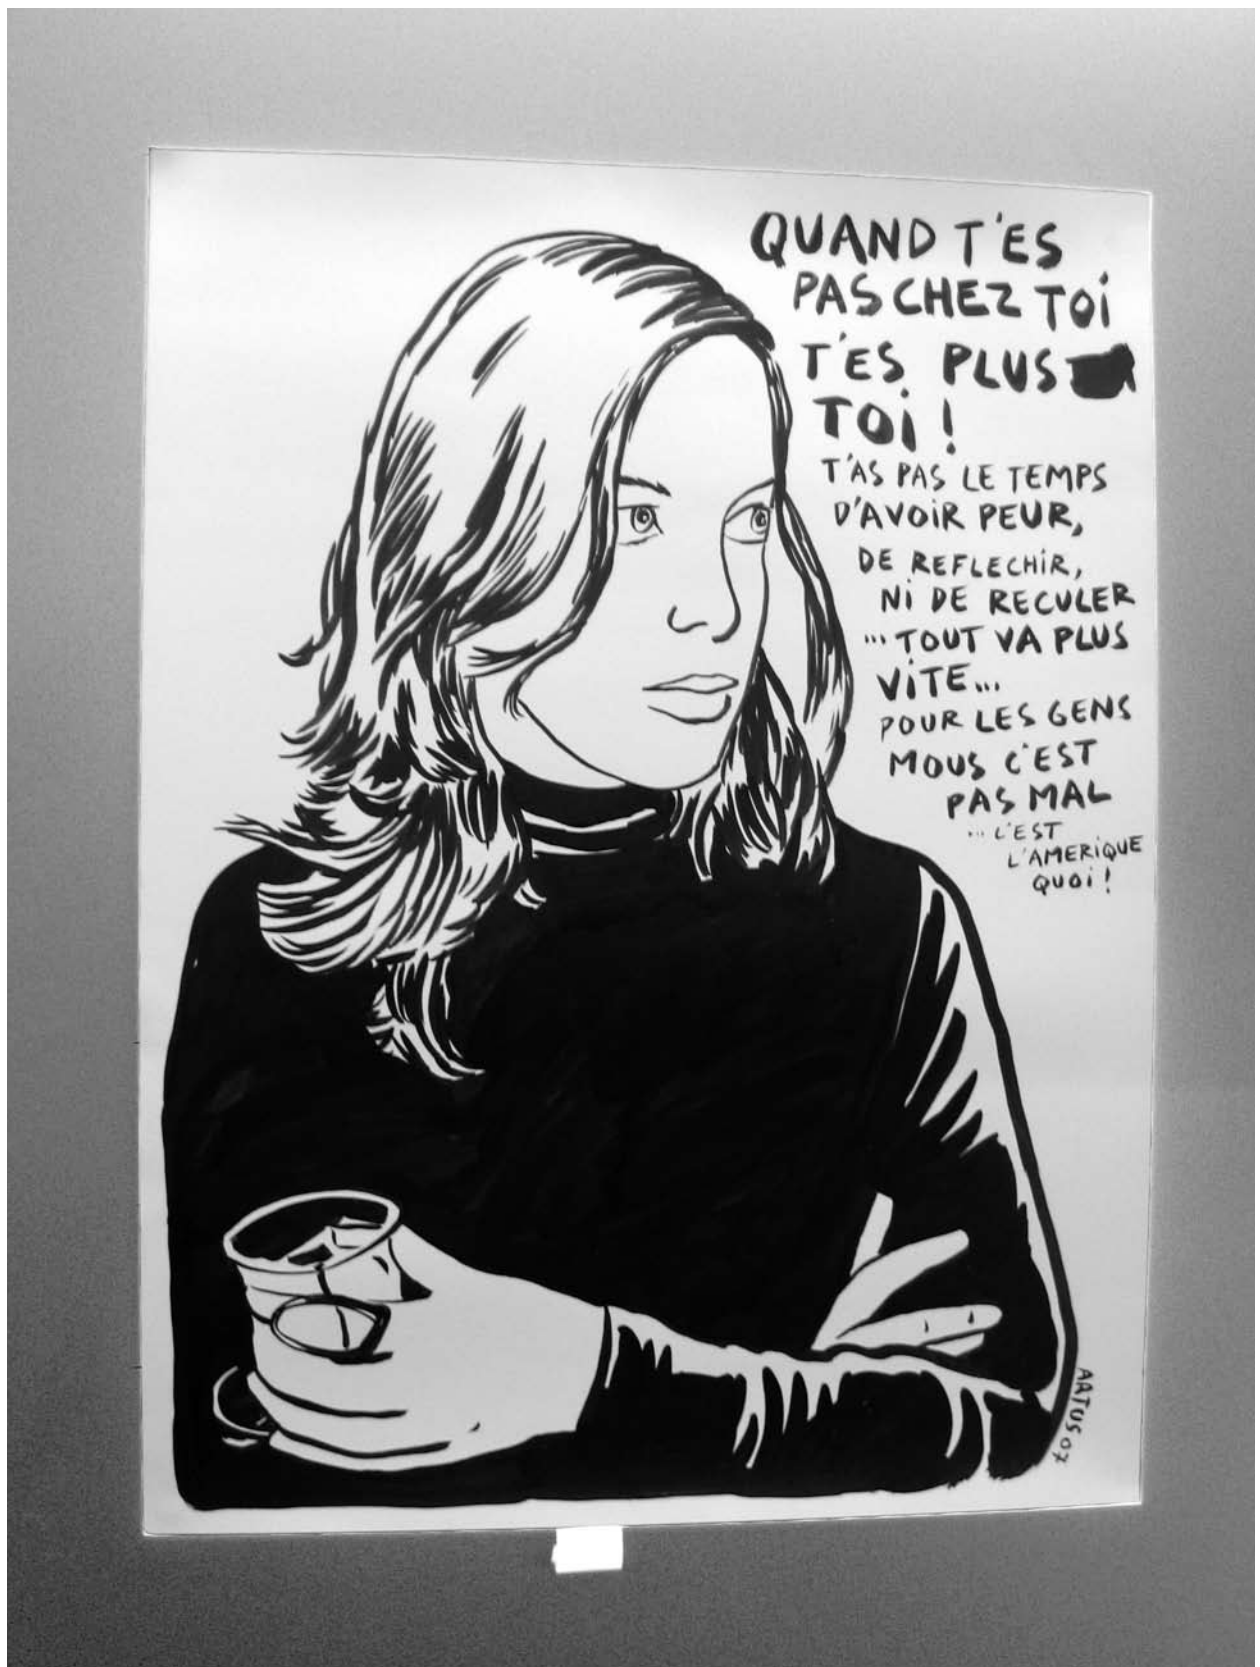 QUAND T'ES
PAS CHEZ TOi
T'ES PLUS
TOi !
T'AS PAS LE TEMPS
D'AVOiR PEUR,
DE REFLECHiR,
Ni DE RECULER
... TOUT VA PLUS
ViTE...
POUR LES GENS
MOUS C'EST
PAS MAL
... L'EST
L'AMERiQUE
QUOi !
AATUS 07